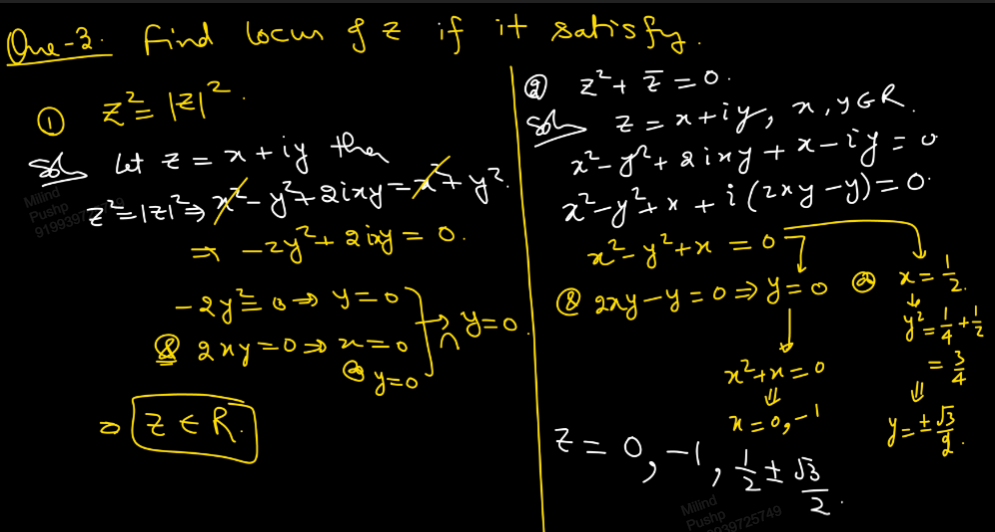 Que-3. Find locus of z if it satisfy.
① z² = |z|².
Soln Let z = x + iy then
z² = |z|² ⇒ x² - y² + 2ixy = x² + y².
⇒ -2y² + 2ixy = 0.
-2y² = 0 ⇒ y = 0
& 2xy = 0 ⇒ x = 0
or y = 0
∩ y = 0
⇒ z ∈ R.
② z² + z̄ = 0.
Soln z = x + iy, x, y ∈ R.
x² - y² + 2ixy + x - iy = 0
x² - y² + x + i(2xy - y) = 0.
x² - y² + x = 0
& 2xy - y = 0 ⇒ y = 0 or x = 1/2.
x² + x = 0
⇓
x = 0, -1
y² = 1/4 + 1/2
= 3/4
⇓
y = ± √3/2.
z = 0, -1, 1/2 ± √3/2.
Milind
Pushp
Milind
Pushp